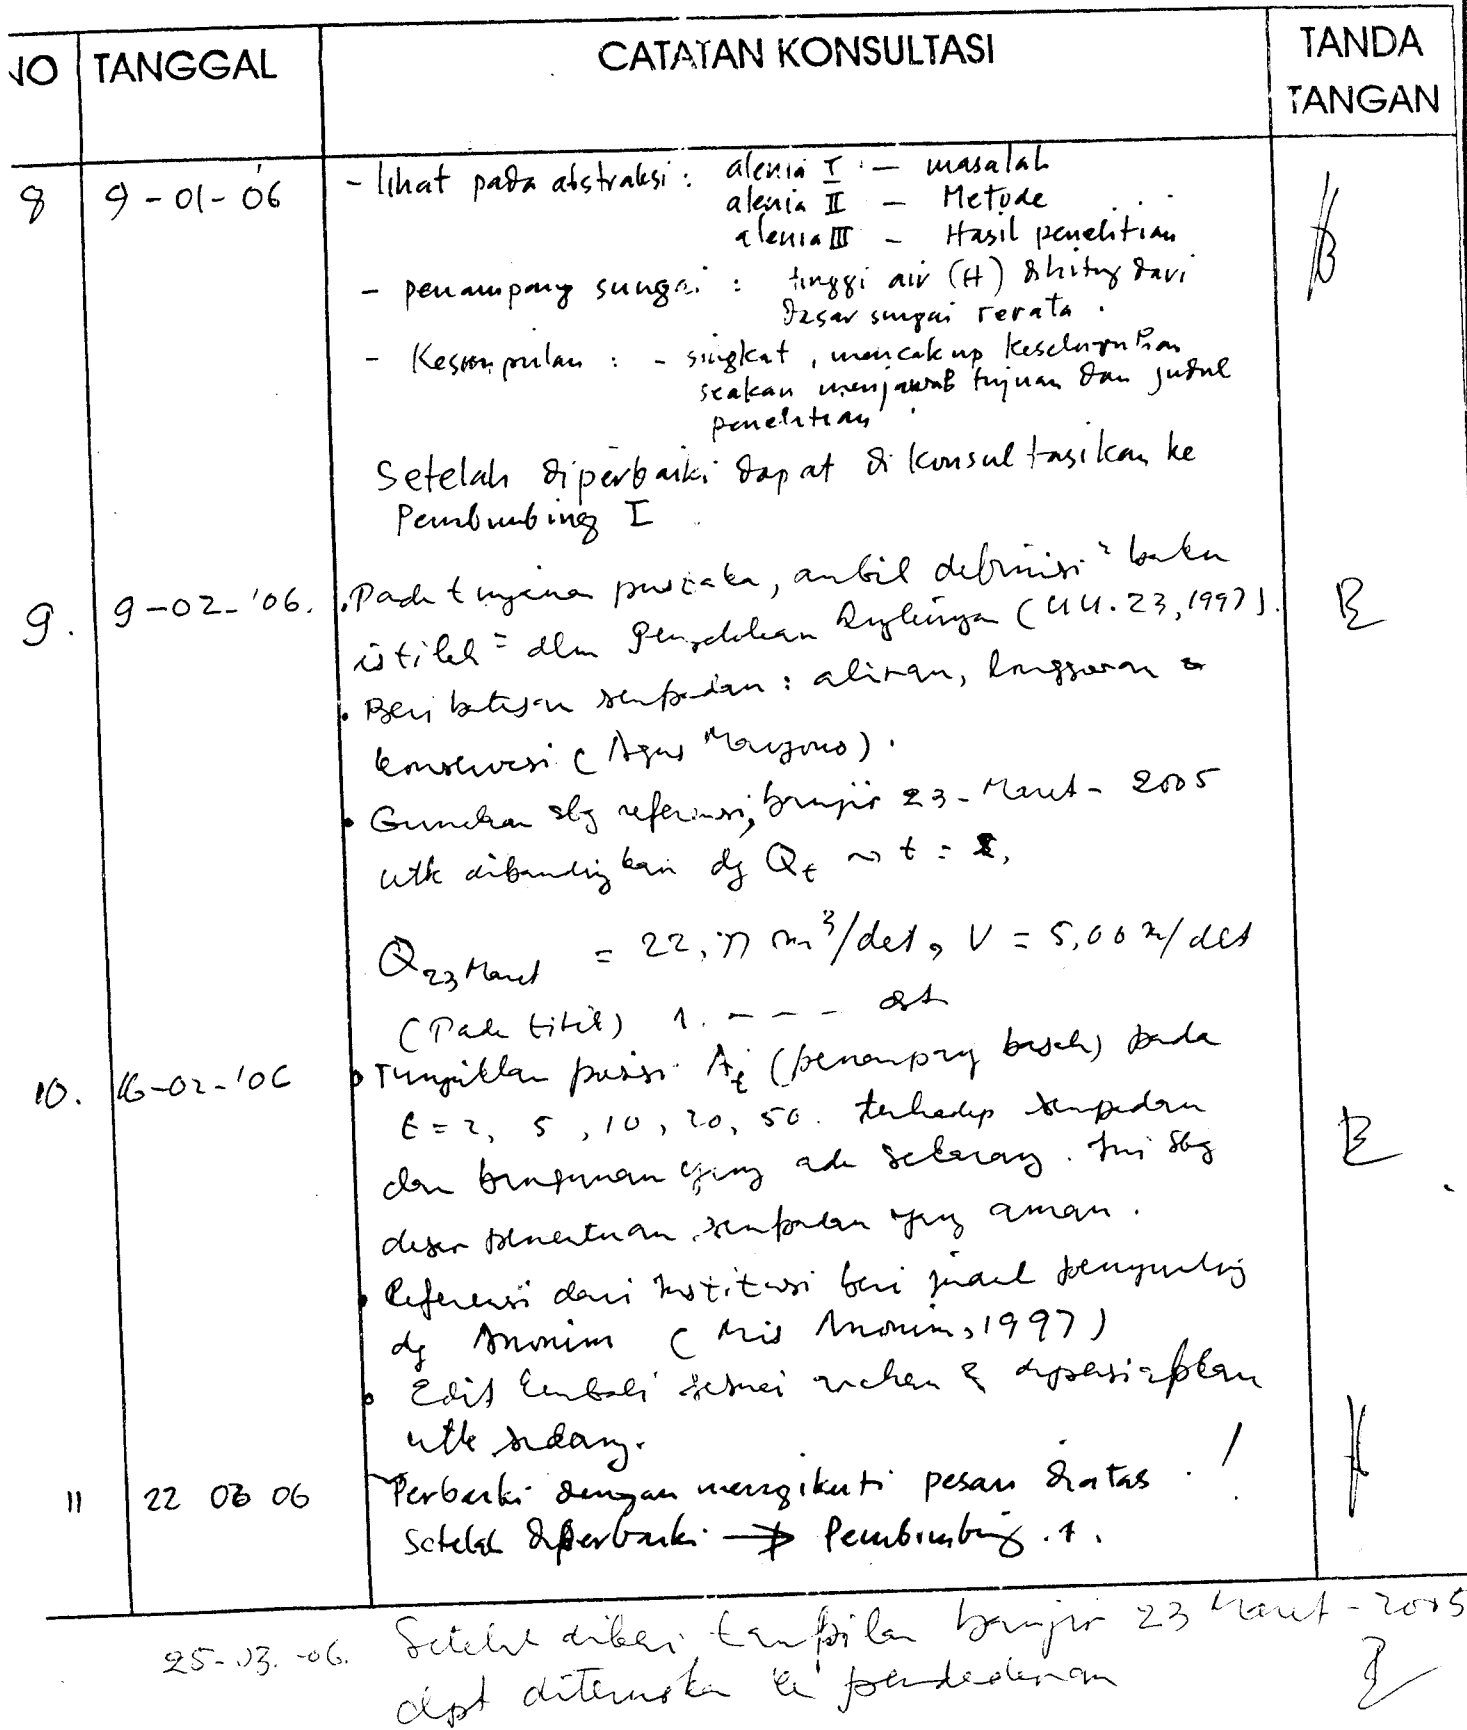 NO TANGGAL CATATAN KONSULTASI TANDA TANGAN
8 9-01-06 - lihat pada abstraksi : alenia I - masalah
alenia II - Metode
alenia III - Hasil penelitian
- penampang sungai : tinggi air (H) dihitung dari
dasar sungai rerata.
- Kesimpulan : - singkat, mencakup keseluruhan
seakan menjawab tujuan dan judul
penelitian
Setelah diperbaiki dapat dikonsultasikan ke
Pembimbing I
9. 9-02-'06. • Pada tinjauan pustaka, ambil definisi² baku
istilah² dlm Pengelolaan Lingkungan (UU.23,1997).
• Beri batasan sempadan : aliran, longsoran &
konservasi (Agus Maryono).
• Gunakan sbg referensi, banjir 23-Maret-2005
utk dibandingkan dg Qt ~ t =
Q23 Maret = 22,77 m³/det, V = 5,00 m/det
(Pada titik) 1. - - - dst
10. 16-02-'06 • Tunjukkan posisi At (penampang basah) pada
t = 2, 5, 10, 20, 50. terhadap sempadan
dan bangunan yang ada sekarang. Ini sbg
dasar penentuan sempadan yang aman.
• Referensi dari institusi beri judul penyunting
dg Anonim (Mis Anonim, 1997)
• Edit kembali sesuai arahan & dipersiapkan
utk sidang.
11 22 03 06 Perbaiki dengan mengikuti pesan diatas . !
Setelah diperbaiki → Pembimbing . 1.
25-03-06. Setelah diberi tampilan banjir 23 Maret-2005
dpt diteruskan ke pendadaran